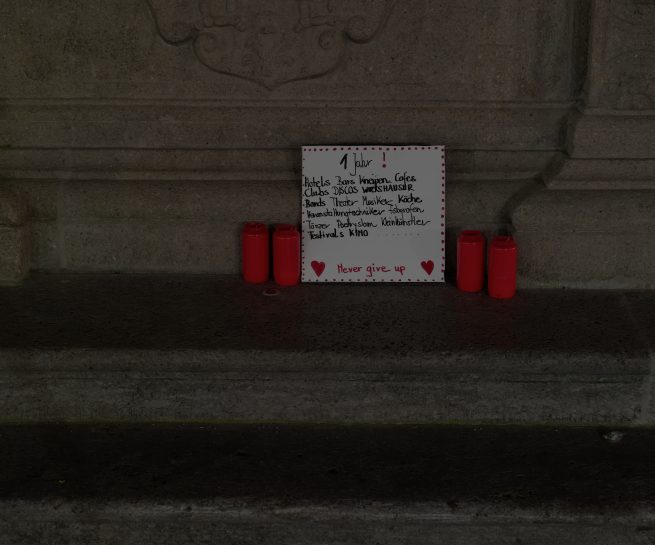 1 Jahr !
Hotels Bars Kneipen Cafes
Clubs DISCOS WIRTSHÄUSER
Bands Theater Musiker Köche
Veranstaltungstechniker
Tänzer Poetryslam Kleinkünstler
Festivals KINO ........
Never give up